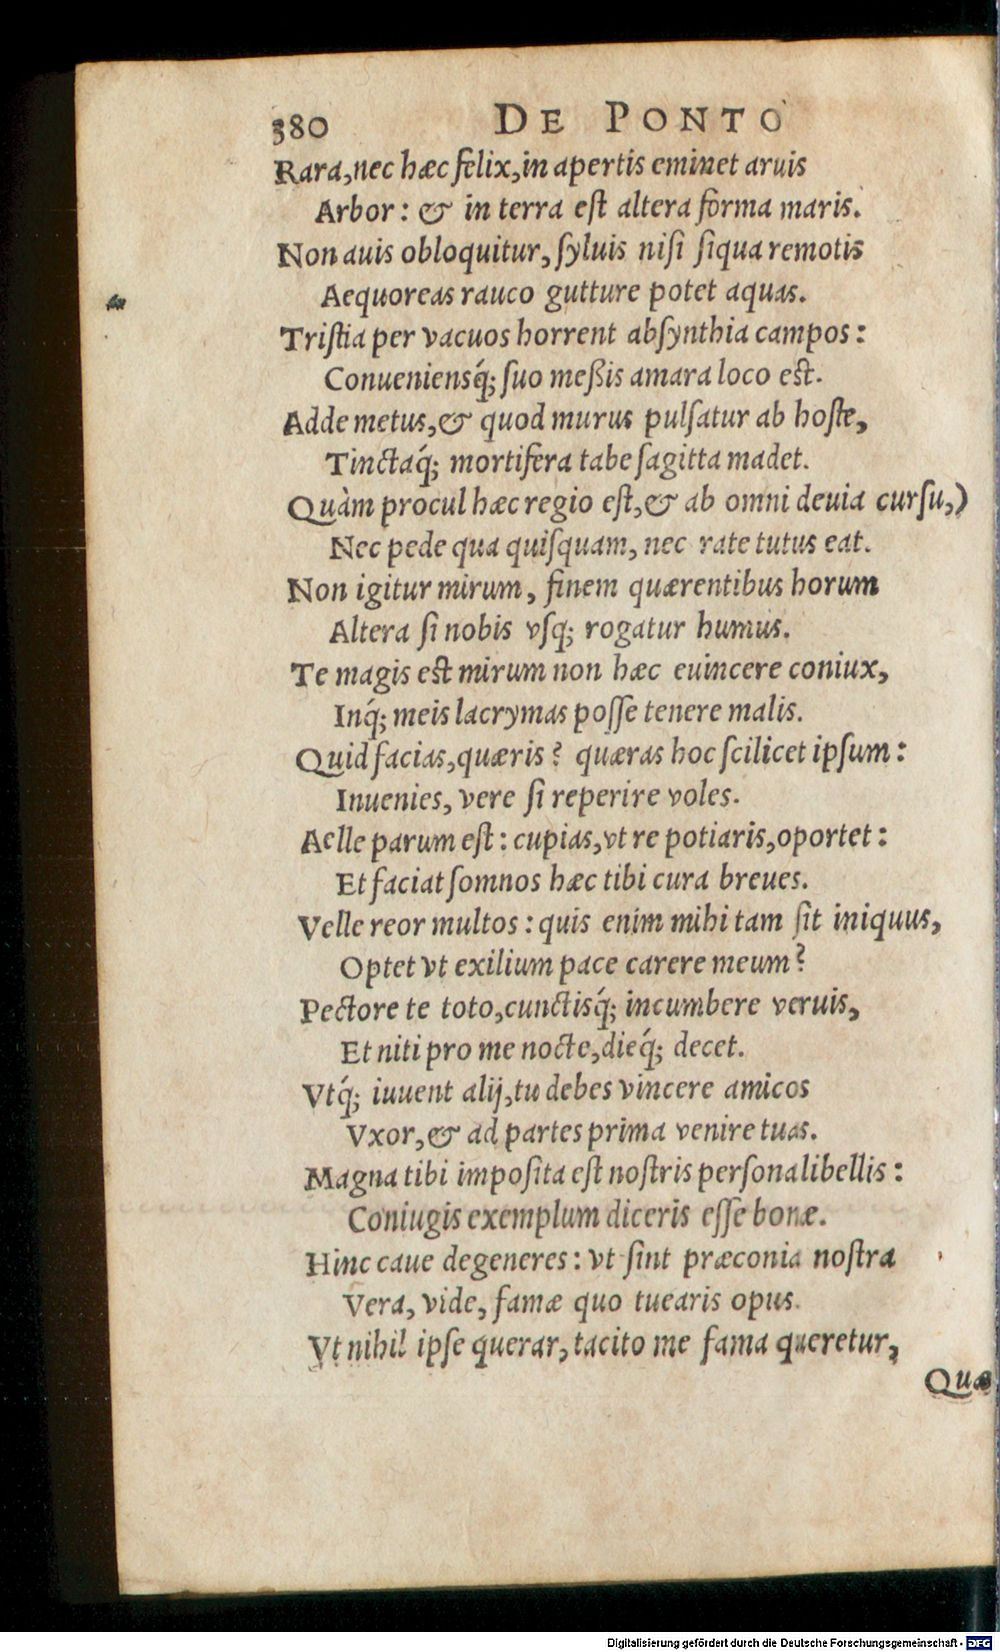 380 DE PONTO
Rara,nec hæc felix,in apertis eminet aruis
Arbor: & in terra est altera forma maris.
Non auis obloquitur, syluis nisi siqua remotis
Aequoreas rauco gutture potet aquas.
Tristia per vacuos horrent absynthia campos:
Conueniensq́; suo meßis amara loco est.
Adde metus,& quod murus pulsatur ab hoste,
Tinctaq́; mortifera tabe sagitta madet.
Quàm procul hæc regio est,& ab omni deuia cursu,)
Nec pede qua quisquam, nec rate tutus eat.
Non igitur mirum, finem quærentibus horum
Altera si nobis vsq; rogatur humus.
Te magis est mirum non hæc euincere coniux,
Inq́; meis lacrymas posse tenere malis.
Quid facias,quæris? quæras hoc scilicet ipsum:
Inuenies, vere si reperire voles.
Aelle parum est: cupias,vt re potiaris,oportet:
Et faciat somnos hæc tibi cura breues.
Velle reor multos: quis enim mihi tam sit iniquus,
Optet vt exilium pace carere meum?
Pectore te toto,cunctisq́; incumbere veruis,
Et niti pro me nocte,dieq́; decet.
Vtq́; iuuent alij,tu debes vincere amicos
Vxor,& ad partes prima venire tuas.
Magna tibi imposita est nostris persona libellis:
Coniugis exemplum diceris esse bonæ.
Hinc caue degeneres: vt sint præconia nostra
Vera, vide, famæ quo tuearis opus.
Vt nihil ipse querar, tacito me fama queretur,
Quæ
Digitalisierung gefördert durch die Deutsche Forschungsgemeinschaft - DFG